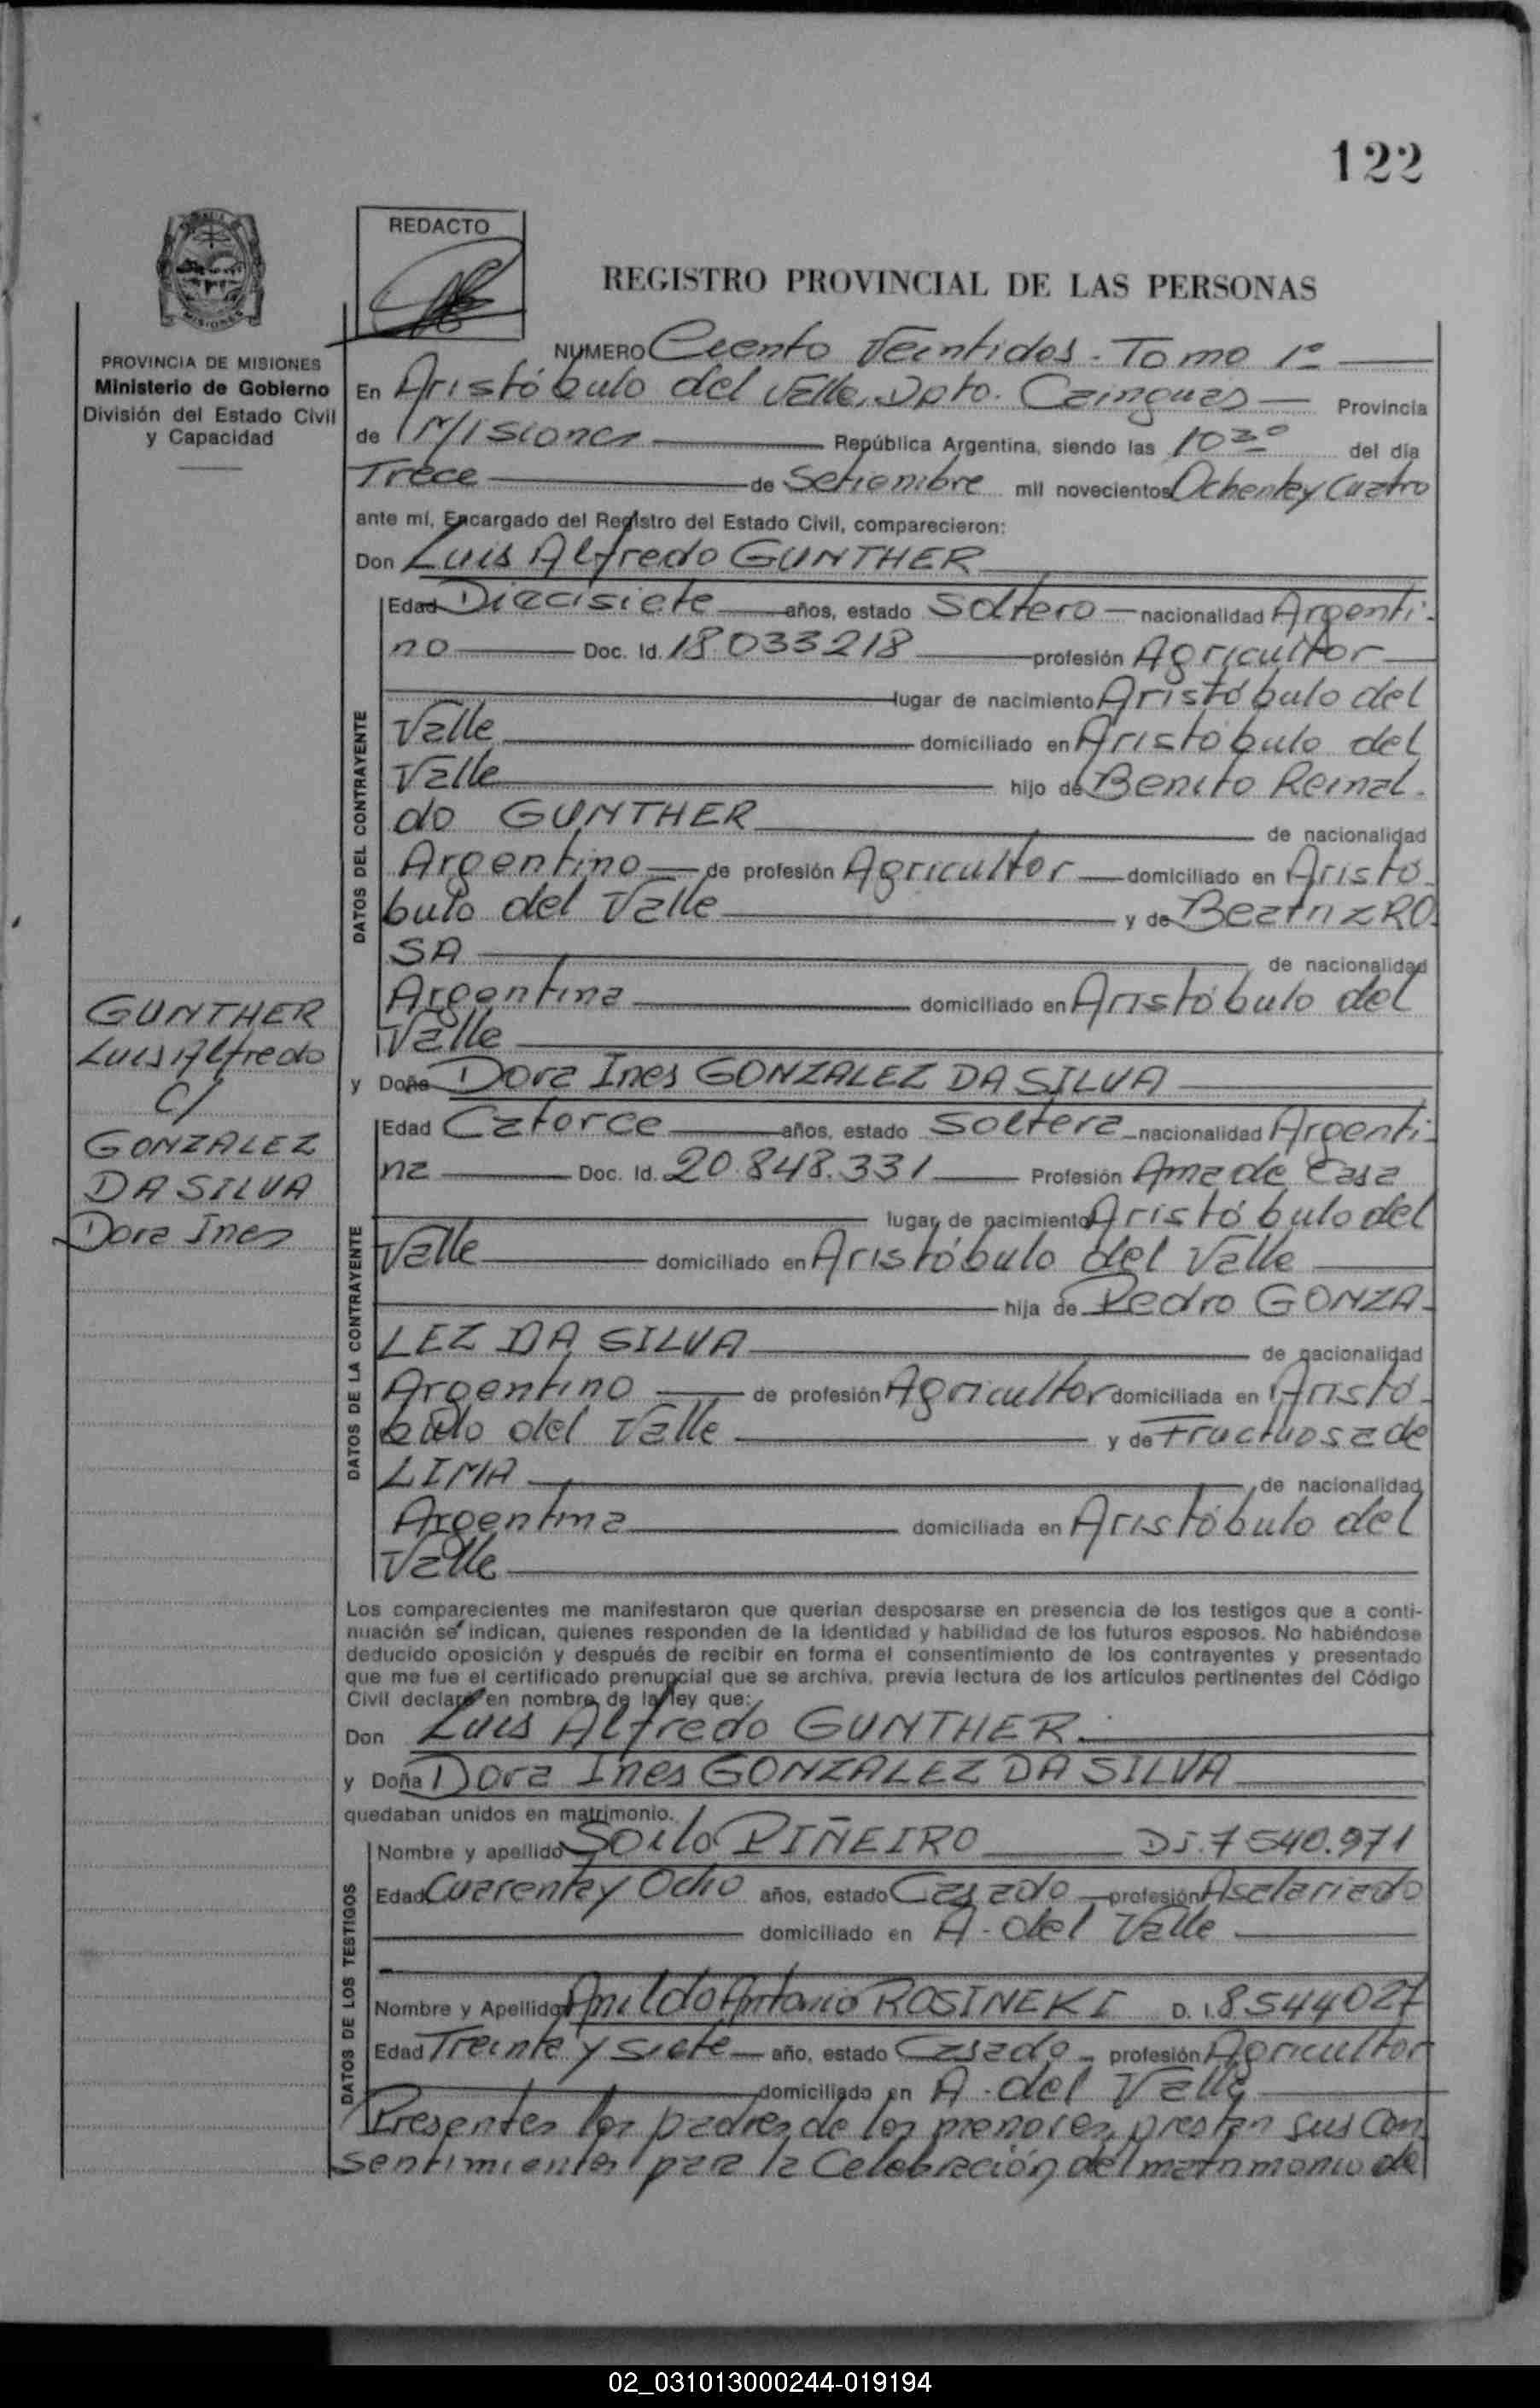 122
REDACTO
REGISTRO PROVINCIAL DE LAS PERSONAS
MISIONES
PROVINCIA DE MISIONES
Ministerio de Gobierno
División del Estado Civil
y Capacidad
NUMERO Ciento Veintidos - Tomo 1º
En Aristóbulo del Valle, Dpto. Cainguas Provincia
de Misiones República Argentina, siendo las 10 30 del día
Trece de Setiembre mil novecientos Ochentay Cuatro
ante mí, Encargado del Registro del Estado Civil, comparecieron:
Don Luis Alfredo GUNTHER
DATOS DEL CONTRAYENTE
Edad Diecisiete años, estado Soltero nacionalidad Argenti-
no Doc. Id. 18.033218 profesión Agricultor
lugar de nacimiento Aristóbulo del
Valle domiciliado en Aristóbulo del
Valle hijo de Benito Reinal-
do GUNTHER de nacionalidad
Argentino de profesión Agricultor domiciliado en Aristó-
bulo del Valle y de Beatriz RO-
SA de nacionalidad
Argentina domiciliado en Aristóbulo del
Valle
GUNTHER
Luis Alfredo
C/
GONZALEZ
DA SILVA
Dora Ines
y Doña Dora Ines GONZALEZ DA SILVA
DATOS DE LA CONTRAYENTE
Edad Catorce años, estado Soltera nacionalidad Argenti-
na Doc. Id. 20.848.331 Profesión Ama de Casa
lugar de nacimiento Aristóbulo del
Valle domiciliado en Aristóbulo del Valle
hija de Pedro GONZA-
LEZ DA SILVA de nacionalidad
Argentino de profesión Agricultor domiciliada en Aristó-
bulo del Valle y de Fructuosa de
LIMA de nacionalidad
Argentina domiciliada en Aristóbulo del
Valle
Los comparecientes me manifestaron que querían desposarse en presencia de los testigos que a conti-
nuación se indican, quienes responden de la identidad y habilidad de los futuros esposos. No habiéndose
deducido oposición y después de recibir en forma el consentimiento de los contrayentes y presentado
que me fue el certificado prenupcial que se archiva, previa lectura de los artículos pertinentes del Código
Civil declaré en nombre de la ley que:
Don Luis Alfredo GUNTHER
y Doña Dora Ines GONZALEZ DA SILVA
quedaban unidos en matrimonio.
DATOS DE LOS TESTIGOS
Nombre y apellido Soilo PIÑEIRO DI. 7540.971
Edad Cuarentay Ocho años, estado Casado profesión Asalariado
domiciliado en A. del Valle
Nombre y Apellido Anildo Antonio ROSINEKI D. I. 8544027
Edad Treinta y siete año, estado Casado profesión Agricultor
domiciliado en A. del Valle
Presentes los padres de los menores prestan sus con
sentimientos para la Celebración del matrimonio de
02_031013000244-019194